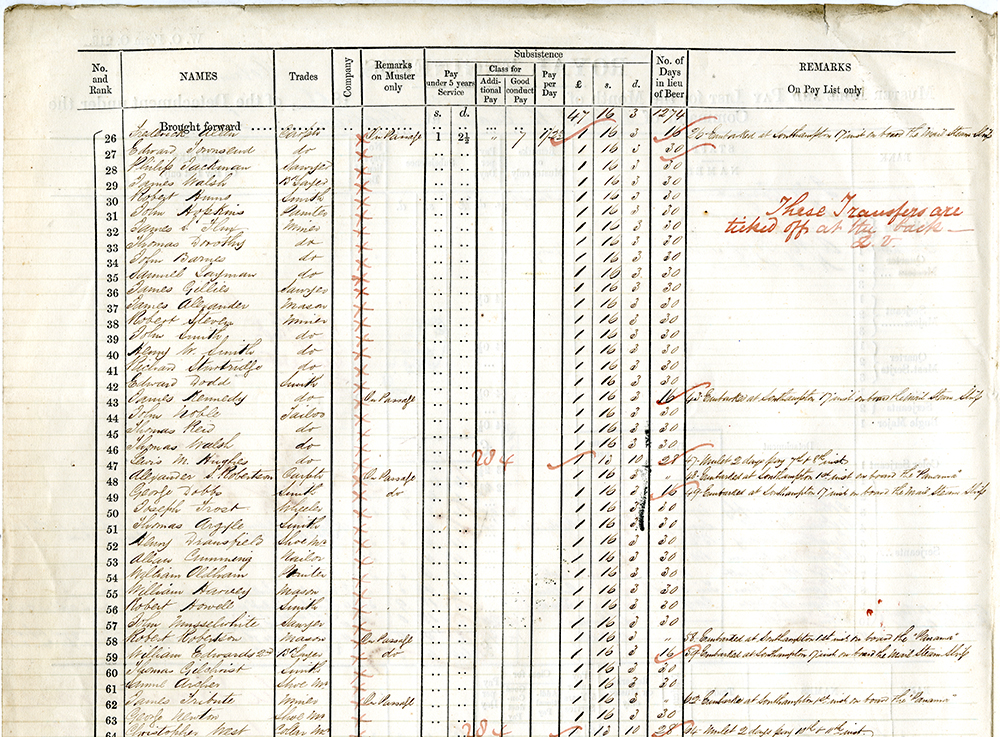 Subsistence
No. and Rank NAMES Trades Company Remarks on Muster only Pay under 5 years Service Class for Additional Pay Good conduct Pay Pay per Day £ s. d. No. of Days in lieu of Beer REMARKS On Pay List only
s. d.
Brought forward 47 16 3 1274
26 On Passage 1 2½ " 7 1 16 3 16 26 Embarked at Southampton 17 inst on board the Mail Steam Ship
27 Edward Townsend do 1 16 3 30
28 Philip Jackman Sawyer 1 16 3 30
29 James Walsh 1 16 3 30
30 Robert Smith 1 16 3 30
31 John Hopkins 1 16 3 30
These Transfers are
32 James Miner 1 16 3 30
ticked off at the back —
33 Thomas Dorothy do 1 16 3 30
Q. V.
34 John Barnes do 1 16 3 30
35 Samuel do 1 16 3 30
36 James Gillies Sawyer 1 16 3 30
37 James Alexander Mason 1 16 3 30
38 Robert Miner 1 16 3 30
39 John Smith do 1 16 3 30
40 Henry W. Smith do 1 16 3 30
41 Richard do 1 16 3 30
42 Edward Dodd Smith 1 16 3 30
43 James Kennedy do On Passage 1 16 3 16 43 Embarked at Southampton 17 inst on board the Mail Steam Ship
44 John Noble Tailor 1 16 3 30
45 Thomas Reid do 1 16 3 30
46 Thomas Walsh do 1 16 3 30
47 M. Hughes do 28 4 1 13 10 28 47 Mulct 2 days pay 7th & 8th inst
48 Alexander S. Robertson On Passage 1 16 3 " 48 Embarked at Southampton 1st inst on board the "Panama"
49 George Dobbs Smith do 1 16 3 16 49 Embarked at Southampton 17 inst on board the Mail Steam Ship
50 Joseph Frost Wheeler 1 16 3 30
51 Thomas Argyle Smith 1 16 3 30
52 Henry Dransfield Shoe Mr 1 16 3 30
53 Allan Cumming Tailor 1 16 3 30
54 William Oldham 1 16 3 30
55 William Harvey Mason 1 16 3 30
56 Robert Howell Smith 1 16 3 30
57 John Musselwhite Sawyer 1 16 3 30
58 Robert Robertson Mason On Passage 1 16 3 " 58 Embarked at Southampton inst on board the "Panama"
59 William Edwards 2nd do 1 16 3 16 59 Embarked at Southampton 17 inst on board the Mail Steam Ship
60 Thomas Gilchrist Smith 1 16 3 30
61 Samuel Archer Shoe Mr 1 16 3 30
62 James Tribute Miner On Passage 1 16 3 " 62 Embarked at Southampton 1st inst on board the "Panama"
63 George Newton Shoe Mr 1 16 3 30
64 Christopher West 28 4 1 13 10 28 64 Mulct 2 days pay inst